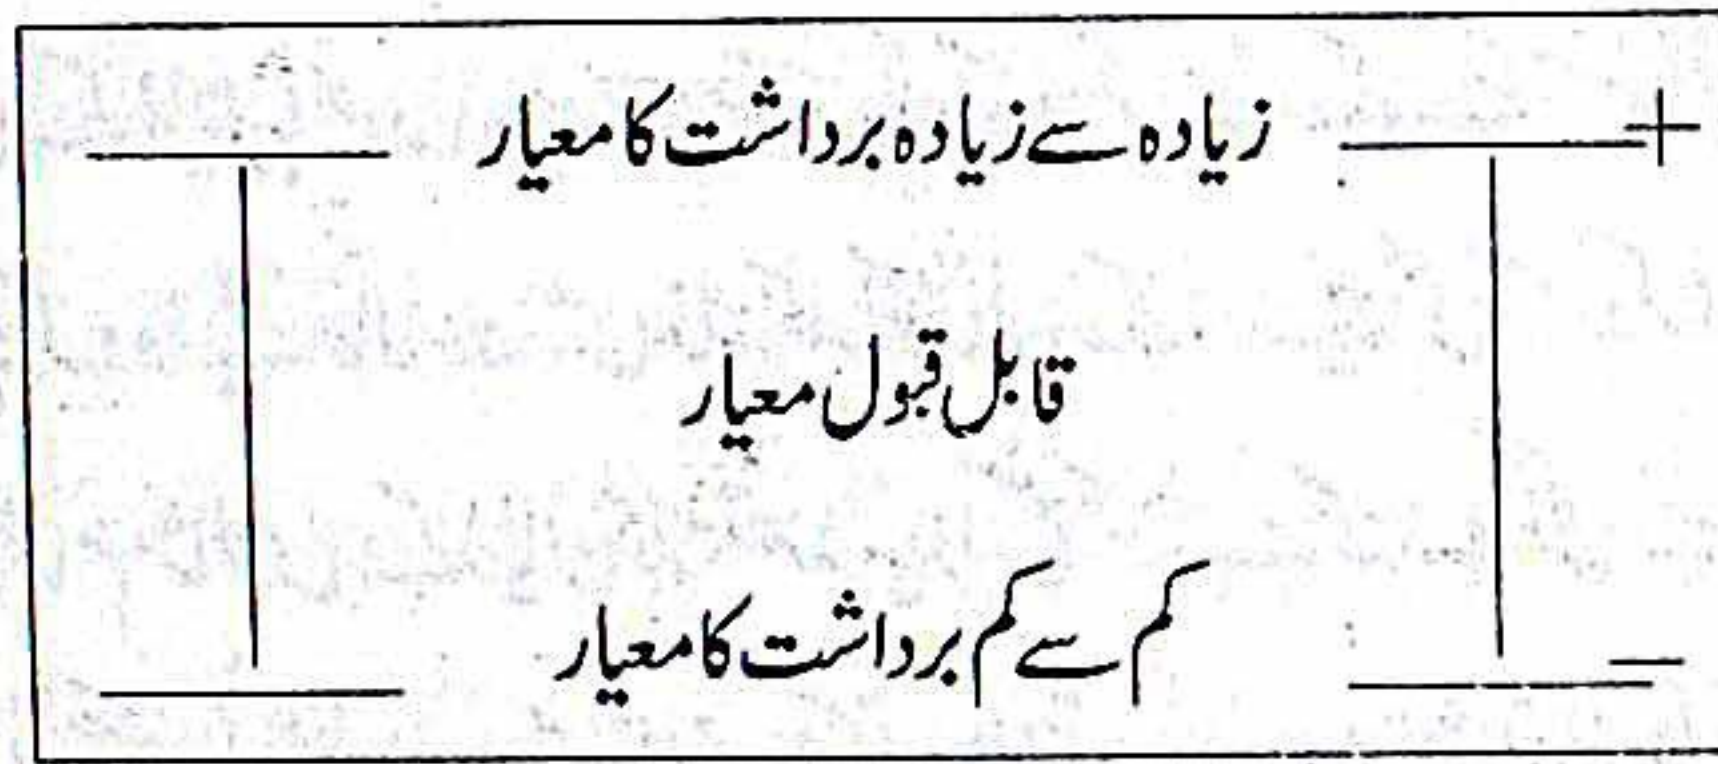 زیادہ سے زیادہ برداشت کا معیار +
قابل قبول معیار
کم سے کم برداشت کا معیار −